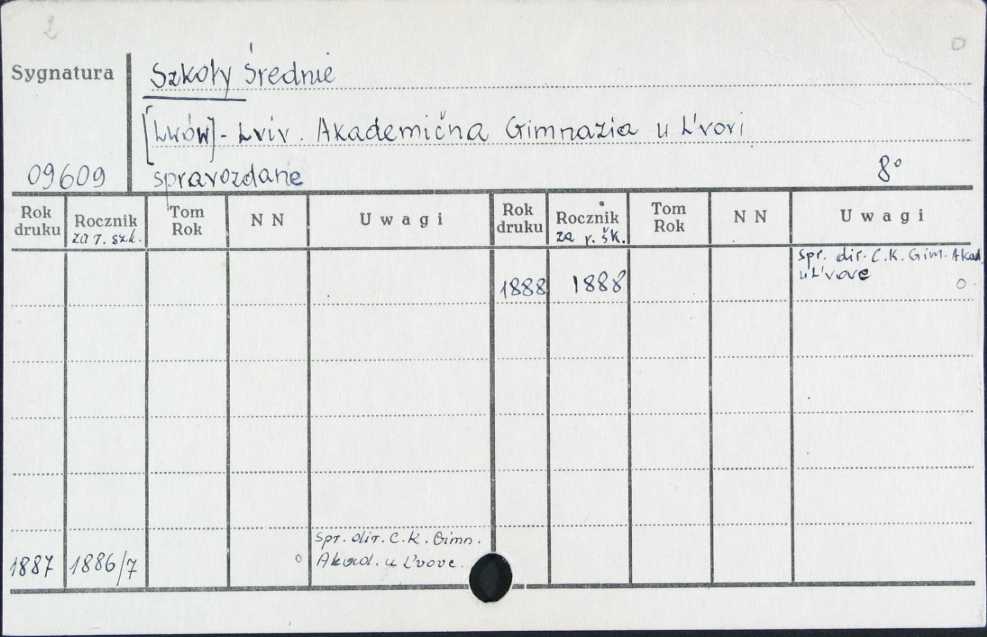 2
0
Sygnatura Szkoły Średnie
[Lwów] - Lviv. Akademična Gimnazia u L'vovi
09609 spravozdane 8°
Rok druku Rocznik za r. szk. Tom Rok N N Uwagi Rok druku Rocznik za r. šk. Tom Rok N N Uwagi
1888 1888 Spr. dir. C.K. Gim. Akad.
u L'vove 0
1887 1886/7 0 Spr. dir. C.K. Gimn.
Akad. u L'vove.